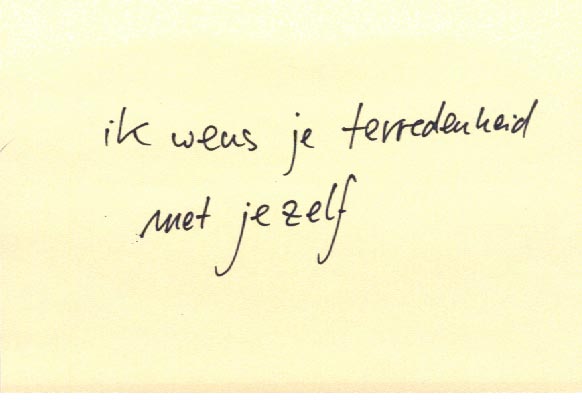 ik wens je terredenheid
met jezelf